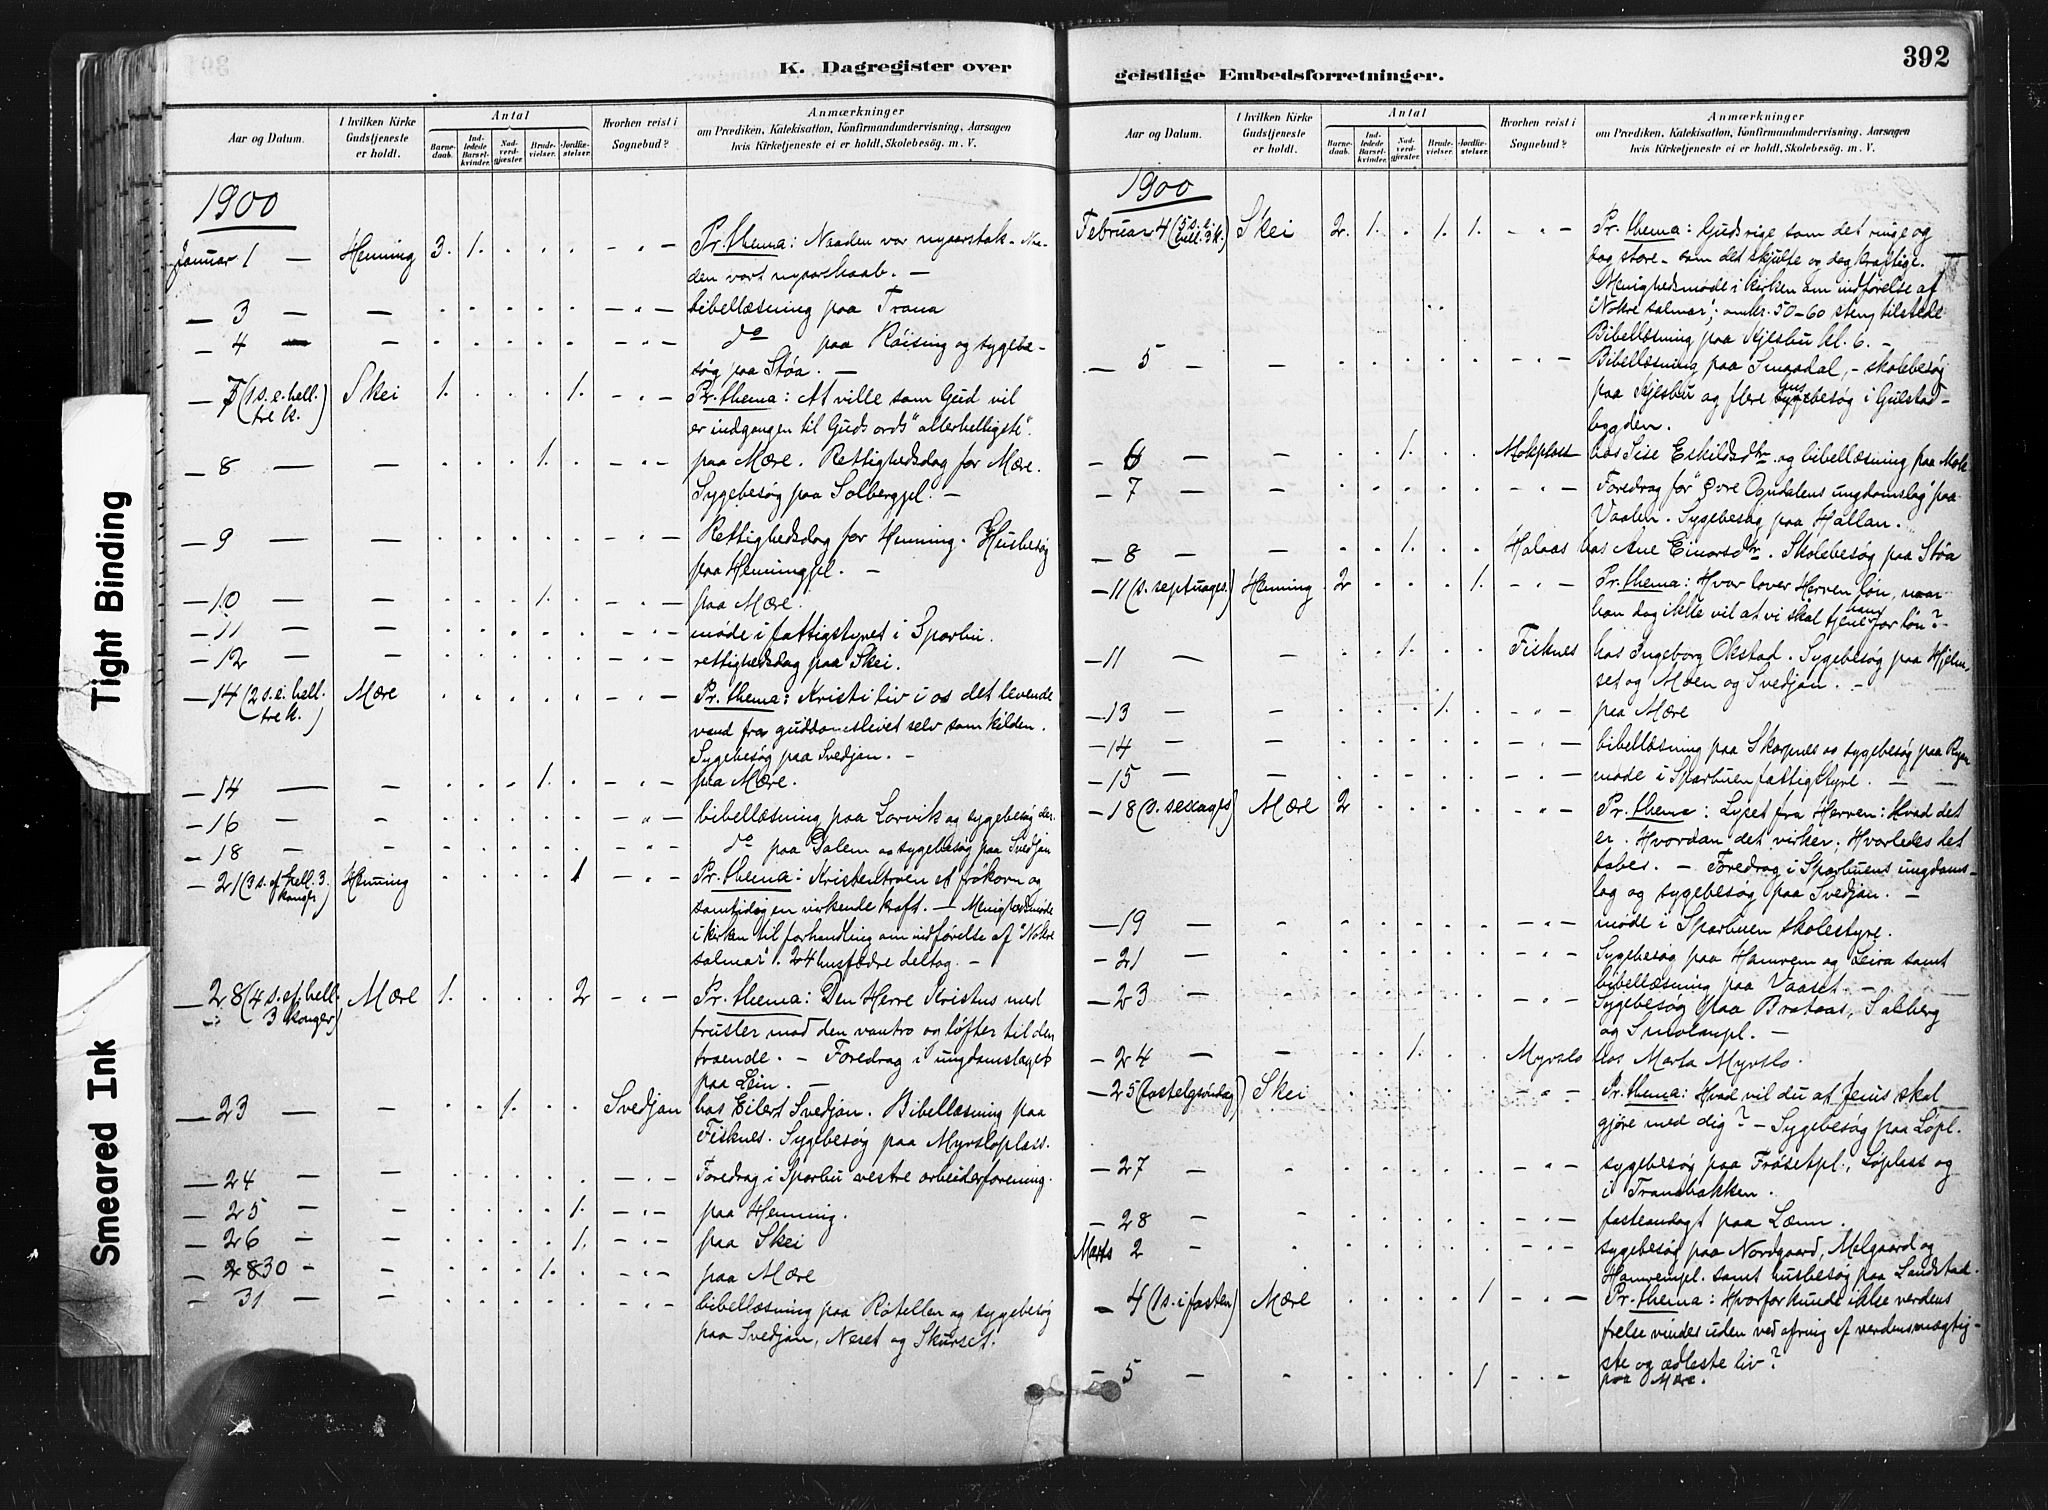 K. Dagregister over
Aar og Datum.
I hvilken Kirke Gudstjeneste er holdt.
Antal
Barnedaab.
Indledede Barselkvinder.
Nadverdgjester.
Brudevielser.
Jordfæstelser.
Hvorhen reist i Sognebud?
Anmærkninger
om Prædiken, Katekisation, Konfirmandundervisning, Aarsagen
hvis Kirketjeneste ei er holdt, Skolebesøg. m. V.
1900
Januar 1 — Henning 3. 1. Pr. thema: Naaden vor nyaarstak - Naa-
den vort nyaarshaab. —
— 3 — — bibellæsning paa Trana
— 4 — — do paa Röising og sygebe-
søg paa Støa. —
— 7 (1 s. e. hell. tre k.) Skei 1. 1. Pr. thema: At ville som Gud vil
er indgangen til Guds ords "allerhelligste".
— 8 — — 1. paa Mære. Rettighedsdag for Mære.
Sygebesøg paa Solbergpl. —
— 9 — — Rettighedsdag for Henning. Husbesøg
paa Henningpl. —
— 10 — — 1. paa Mære.
— 11 — — møde i fattigstyret i Sparbu.
— 12 — — rettighedsdag paa Skei.
— 14 (2 s. e. hell. tre k.) Mære Pr. thema: Kristi liv i os det levende
vand fra guddomslivet selv som kilden.
Sygebesøg paa Svedjan. —
— 14 — — 1. paa Mære.
— 16 — — bibellæsning paa Lorvik og sygebesøg der.
— 18 — — do paa Dalem og sygebesøg paa Svedjan
— 21 (3 s. ef. hell. 3 konger) Henning 1 Pr. thema: Kristentroen et frökorn og
samtidig en virkende kraft. — Menighedsmøde
i kirken til forhandling om indførelse af "Nokre
salmar". 24 husfædre deltog. —
— 28 (4 s. ef. hell. 3 konger) Mære 1. 2 Pr. thema: Den Herre Kristus med
trusler mod den vantro og løfter til den
troende. — Foredrag i ungdomslaget
paa Lein. —
— 23 — — 1. Svedjan hos Eilert Svedjan. Bibellæsning paa
Fisknes. Sygebesøg paa Myrsloplass.
— 24 — — Foredrag i Sparbu vestre arbeiderforening.
— 25 — — 1. paa Henning.
— 26 — — 1. paa Skei
— 2830 — — 1. paa Mære
— 31 — — bibellæsning paa Røtellen og sygebesøg
paa Svedjan, Neset og Skurset.
geistlige Embedsforretninger.
392
Aar og Datum.
I hvilken Kirke Gudstjeneste er holdt.
Antal
Barnedaab.
Indledede Barselkvinder.
Nadverdgjester.
Brudevielser.
Jordfæstelser.
Hvorhen reist i Sognebud?
Anmærkninger
om Prædiken, Katekisation, Konfirmandundervisning, Aarsagen
hvis Kirketjeneste ei er holdt, Skolebesøg. m. V.
1900
Februar 4 (5 s. e. hell. 3 k.) Skei 2. 1. 1. 1. Pr. thema: Guds rige som det ringe og
dog store - som det skjulte og dog kraftige.
Menighedsmøde i kirken om indførelse af
"Nokre salmar"; omkr. 50-60 stemg. tilstede
Bibellæsning paa Kjesbu kl. 6. —
— 5 — — Bibellæsning paa Smaadal, - skolebesøg
paa Kjesbu og flere husbesøg i Gulstad-
bygden.
— 6 — — 1. Mokplass hos Sise Eskildsdtr. og bibellæsning paa Mok
— 7 — — Foredrag for "Øvre Ogndalens ungdomslag" paa
Vaalen. Sygebesøg paa Hallan.
— 8 — — 1. Halaas hos Ane Einarsdtr. Skolebesøg paa Støa
— 11 (s. septuages.) Henning 2 1. Pr. thema: Hvor lover Herren løn, naar
han dog ikke vil at vi skal tjene ham for løn?
— 11 — — 1. Fisknes hos Ingeborg Okstad. Sygebesøg paa Hjelm-
set og Moen og Svedjan. —
— 13 — — 1. paa Mære
— 14 — — bibellæsning paa Skarpnes og sygebesøg paa
— 15 — — møde i Sparbuen fattigstyre. —
— 18 (s. sexages) Mære 2 Pr. thema: Lyset fra Herren: Hvad det
er. Hvordan det virker. Hvorledes det
tabes. — Foredrag i Sparbuens ungdoms-
lag og sygebesøg paa Svedjan. —
— 19 — møde i Sparbuen skolestyre.
— 21 — Sygebesøg paa Hamrem og Leira samt
bibellæsning paa Vaaset. —
— 23 — Sygebesøg paa Brataas, Salberg
og Smolanpl. —
— 24 — — 1. Myrslo hos Marta Myrslo.
— 25 (fastelgsöndag) Skei Pr. thema: Hvad vil du at Jesus skal
gjøre med dig? — Sygebesøg paa Löpl.
— 27 — sygebesøg paa Frösetpl., Løplass og
i Tranabakken.
— 28 — fasteandagt paa Lænn.
Marts 2 — sygebesøg paa Nordgaard, Melgaard og
Hamrempl. samt husbesøg paa Landstad.
— 4 (1 s. i fasten) Mære 1 Pr. thema: Hvorfor kunde ikke verdens
frelse vindes uden ved ofring af verdensmægtig-
ste og ædleste liv?
— 5 — 1 paa Mære.
Tight Binding
Smeared Ink